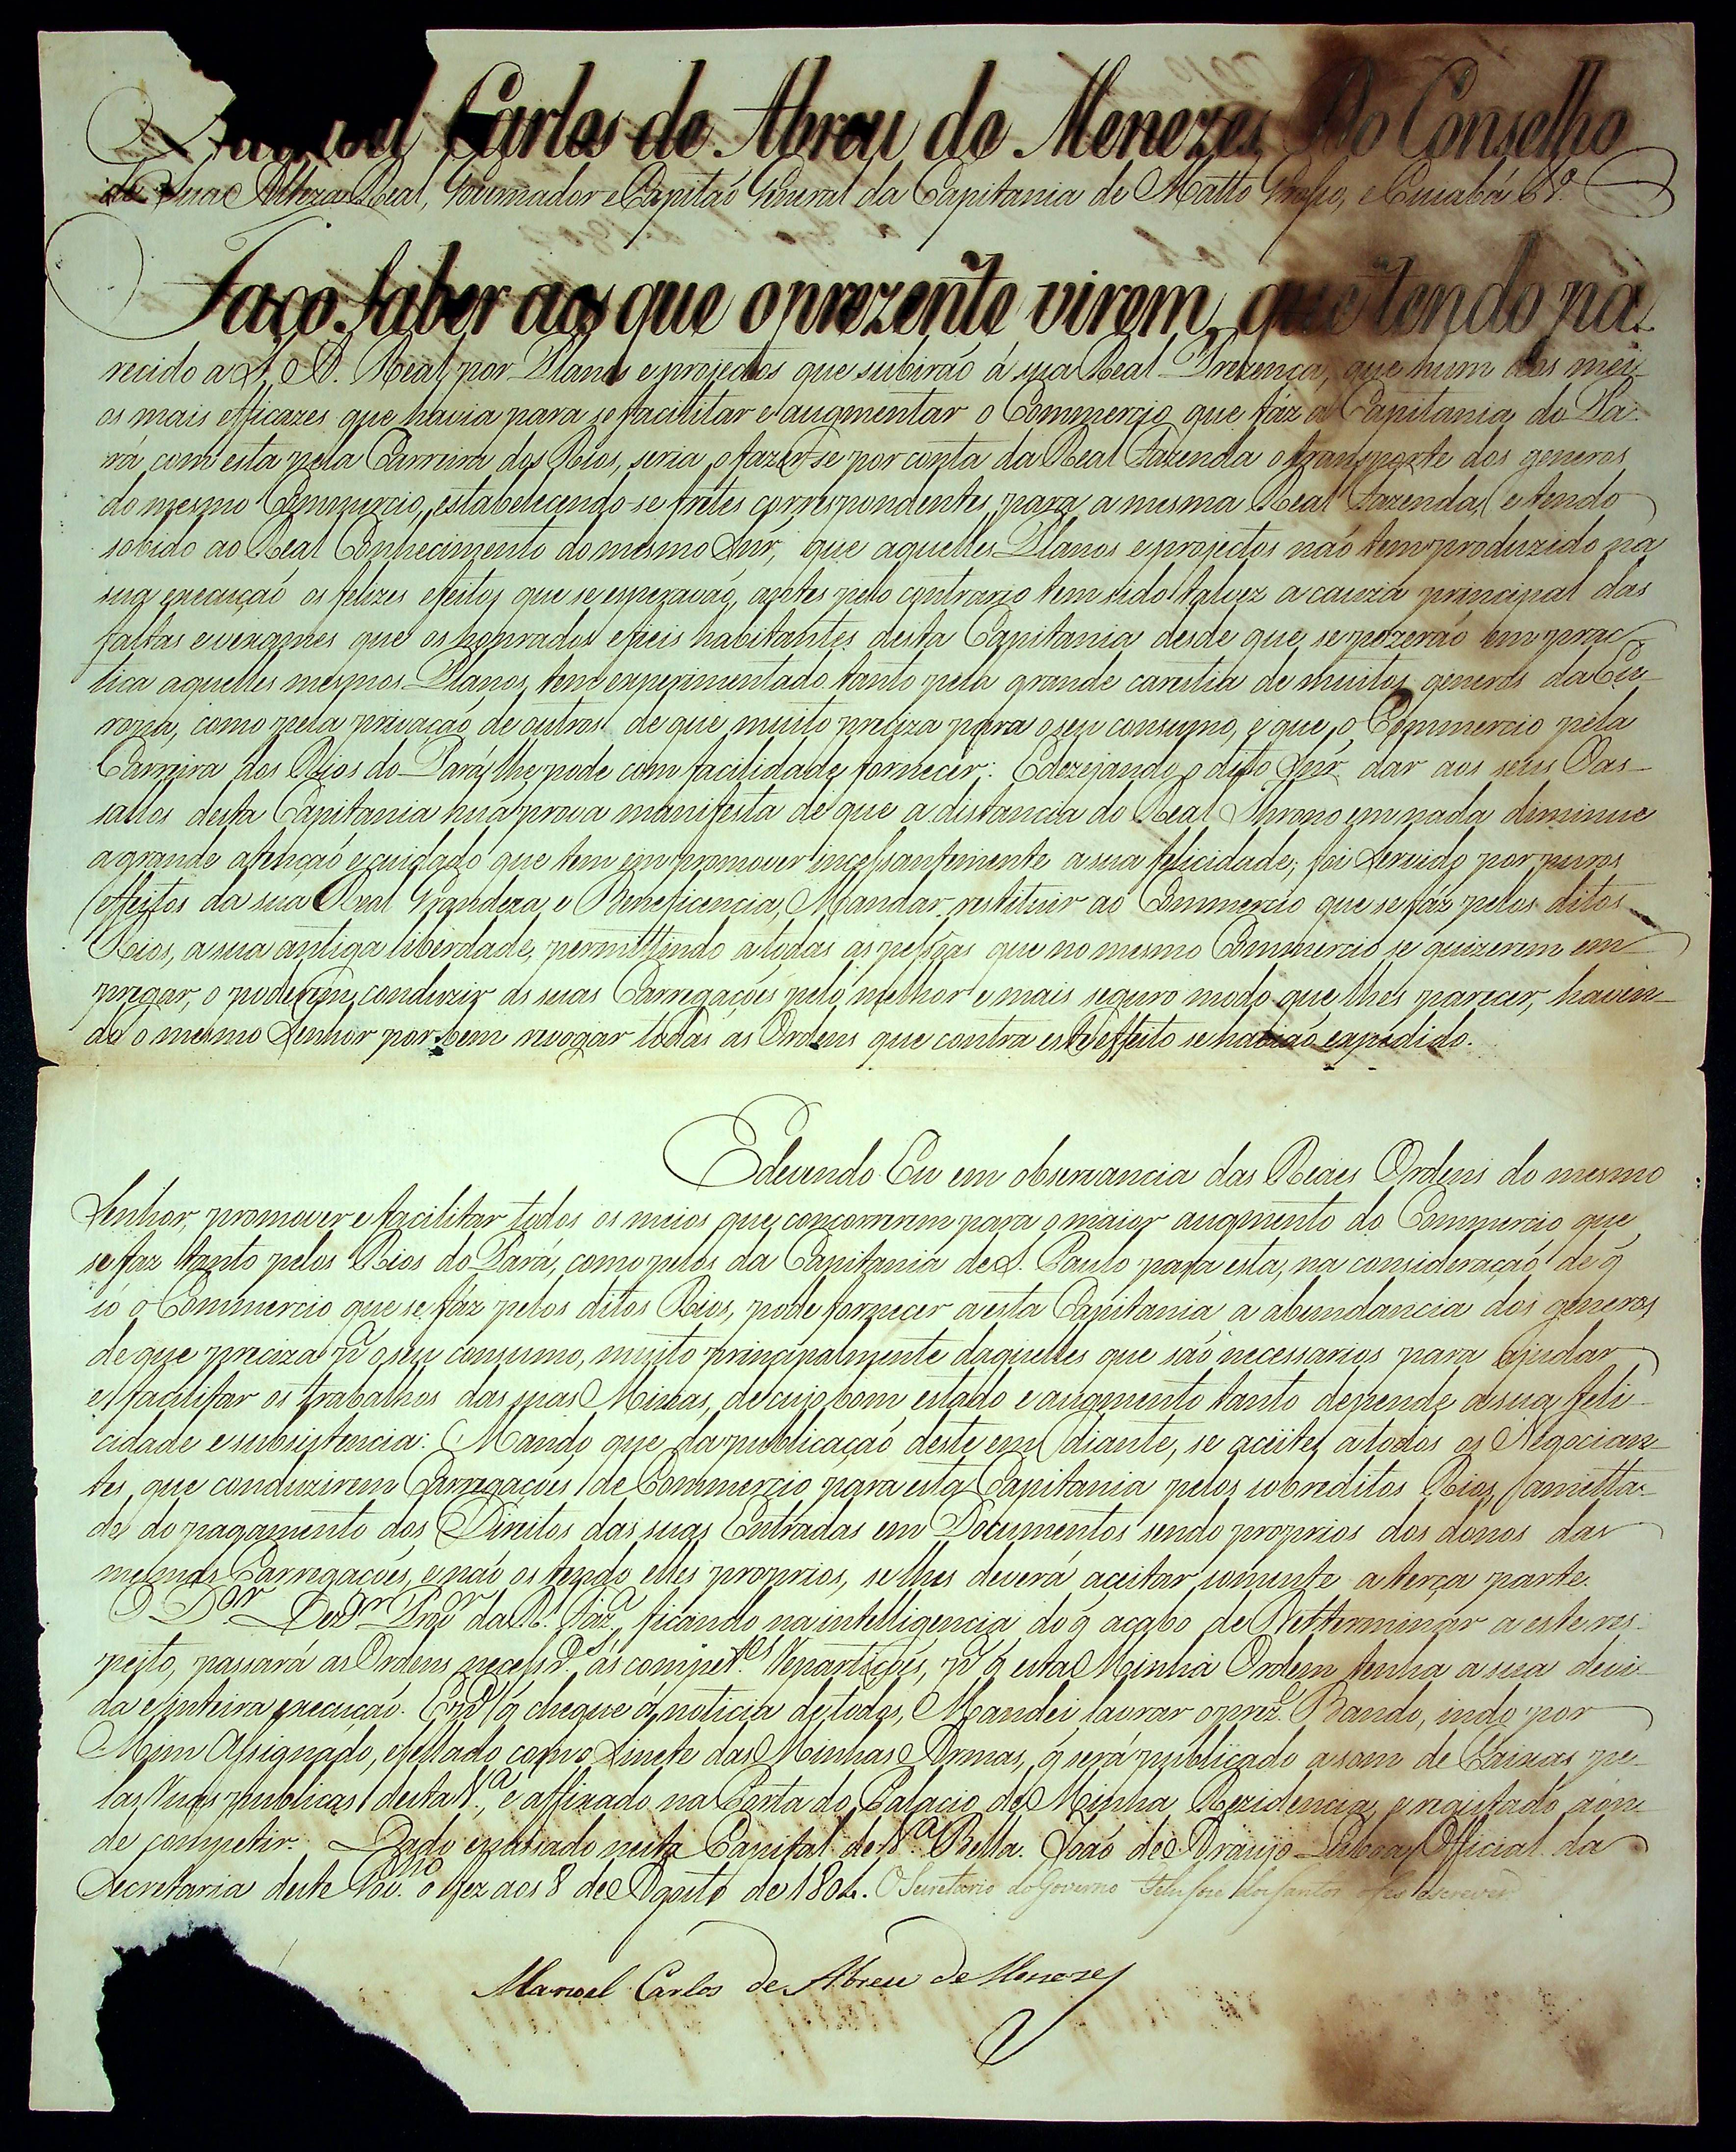 Manoel Carlos de Abreu de Menezes Do Conselho
de Sua Alteza Real, Governador e Capitaõ General da Capitania de Matto Grosso, e Cuiabá &ª.
Faço saber aos que o prezente virem, que tendo pa-
recido a S. A. Real por Planos e projectos que subiraõ á sua Real Prezença, que hum dos mei-
os mais efficazes que havia para se facilitar e augmentar o Commercio que fáz a Capitania do Pa-
rá com esta pela Carreira dos Rios, seria o fazer-se por conta da Real Fazenda o transporte dos generos
do mesmo Commercio, estabelecendo-se fretes correspondentes para a mesma Real Fazenda, e tendo
sobido ao Real Conhecimento do mesmo Snr, que aquelles Planos e projectos naõ tem produzido na
sua execuçaõ os felizes efeitos que se esperavaõ, antes pelo contrario tem sido talvez a cauza principal das
faltas e vexames que os honrados e fieis habitantes desta Capitania desde que se pozeraõ em prac-
tica aquelles mesmos Planos, tem experimentado tanto pela grande carestia de muitos generos da Eu-
ropa, como pela privaçaõ de outros de que muito preciza para o seu consumo, e que o Commercio pela
Carreira dos Rios do Pará lhe pode com facilidade fornecer: E dezejando o dito Snr dar aos seus Vas-
sallos desta Capitania huã prova manifesta de que a distancia do Real Throno em nada diminue
a grande atençaõ e cuidado que tem em promover incessantemente a sua felicidade; foi Servido por puros
effeitos da sua Real Grandeza e Beneficencia, Mandar restituir ao Commercio que se fáz pelos ditos
Rios, a sua antiga liberdade, permittindo a todas as pessoas que no mesmo Commercio se quizerem em-
pregar, o poderem conduzir as suas Carregaçoẽs pelo melhor e mais seguro modo que lhes parecer, haven-
do o mesmo Senhor por bem revogar todas as Ordens que contra este effeito se haviaõ expedido.
E devendo Eu em observancia das Reaes Ordens do mesmo
Senhor, promover e facilitar todos os meios que concorrerem para o maior augmento do Commercio que
se faz tanto pelos Rios do Pará, como pelos da Capitania de S. Paulo para esta, na consideraçaõ de q̃
só o Commercio que se fáz pelos ditos Rios, pode fornecer a esta Capitania a abundancia dos generos
de que preciza pª o seu consumo, muito principalmente daquelles que saõ necessarios para ajudar
e facilitar os trabalhos das suas Minas, de cujo bom estado e augmento tanto depende a sua feli-
cidade e subsistencia: Mando que da publicaçaõ deste em diante, se aceite a todos os Negocian-
tes, que conduzirem Carregaçoẽs de Commercio para esta Capitania pelos sobreditos Rios, ametta-
de do pagamento dos Direitos das suas Entradas em Documentos sendo proprios dos donos das
mesmas Carregaçoẽs, e naõ os tendo elles proprios, se lhes deverá aceitar somente a terça parte.
O Dor Dezor Provor da Rl. Fazª, ficando na intelligencia do q̃ acabo de Detterminar a este res-
peito, passará as Ordens necessªs. ás compettes. Repartiçoẽs, pª q̃ esta Minha Ordem tenha a sua devi-
da e inteira execuçaõ. E pª q̃ chegue á noticia de todos, Mandei lavrar o prezte. Bando, indo por
Mim Assignado, e sellado com o Sinete das Minhas Armas, q̃ será publicado a som de Caixas pe-
las ruas publicas desta Vª, e affixado na Porta do Palacio de Minha Rezidencia, e registado aon-
de competir. Dado e passado nesta Capital de Vª. Bella. Joaõ de Araujo Lisboa, Official da
Secretaria deste Govno. o fez aos 8 de Agosto de 1804. O Secretario do Governo dos Santos o fez escrever
Manoel Carlos de Abreu de Menezes